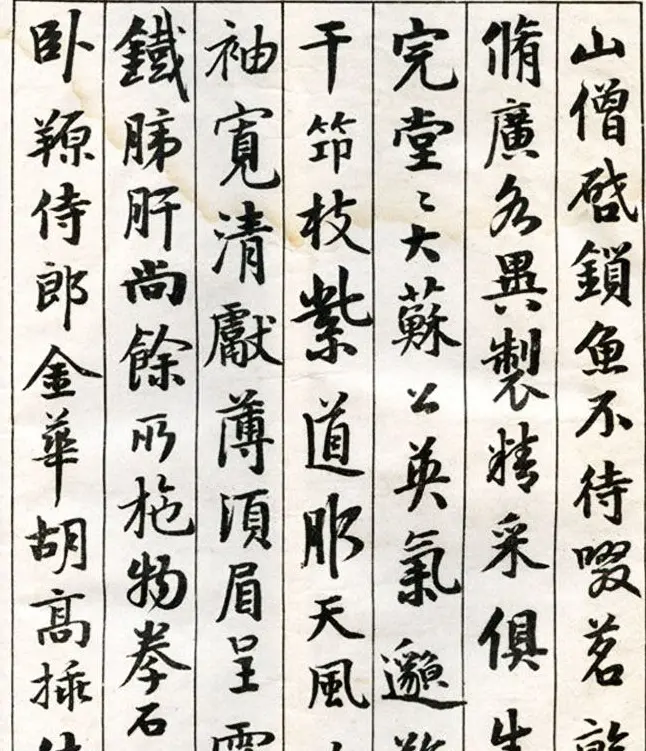 山僧啓鎖魚不待啜茗
脩廣各異製精采俱生
完堂〻大蘇公英氣邈
干筇枝紫道服天風
袖寬清獻薄須眉呈
鐵肺肝尚餘所拖物拳石
卧鞹侍郎金華胡高插